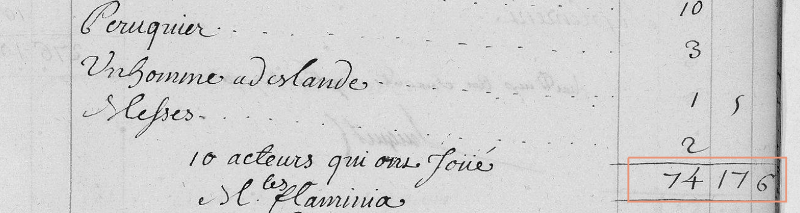 10
Peruquier
3
Un homme a deslande
1 5
Messes
2
10 acteurs qui ont Joüé
74 17 6
M.lles flaminia